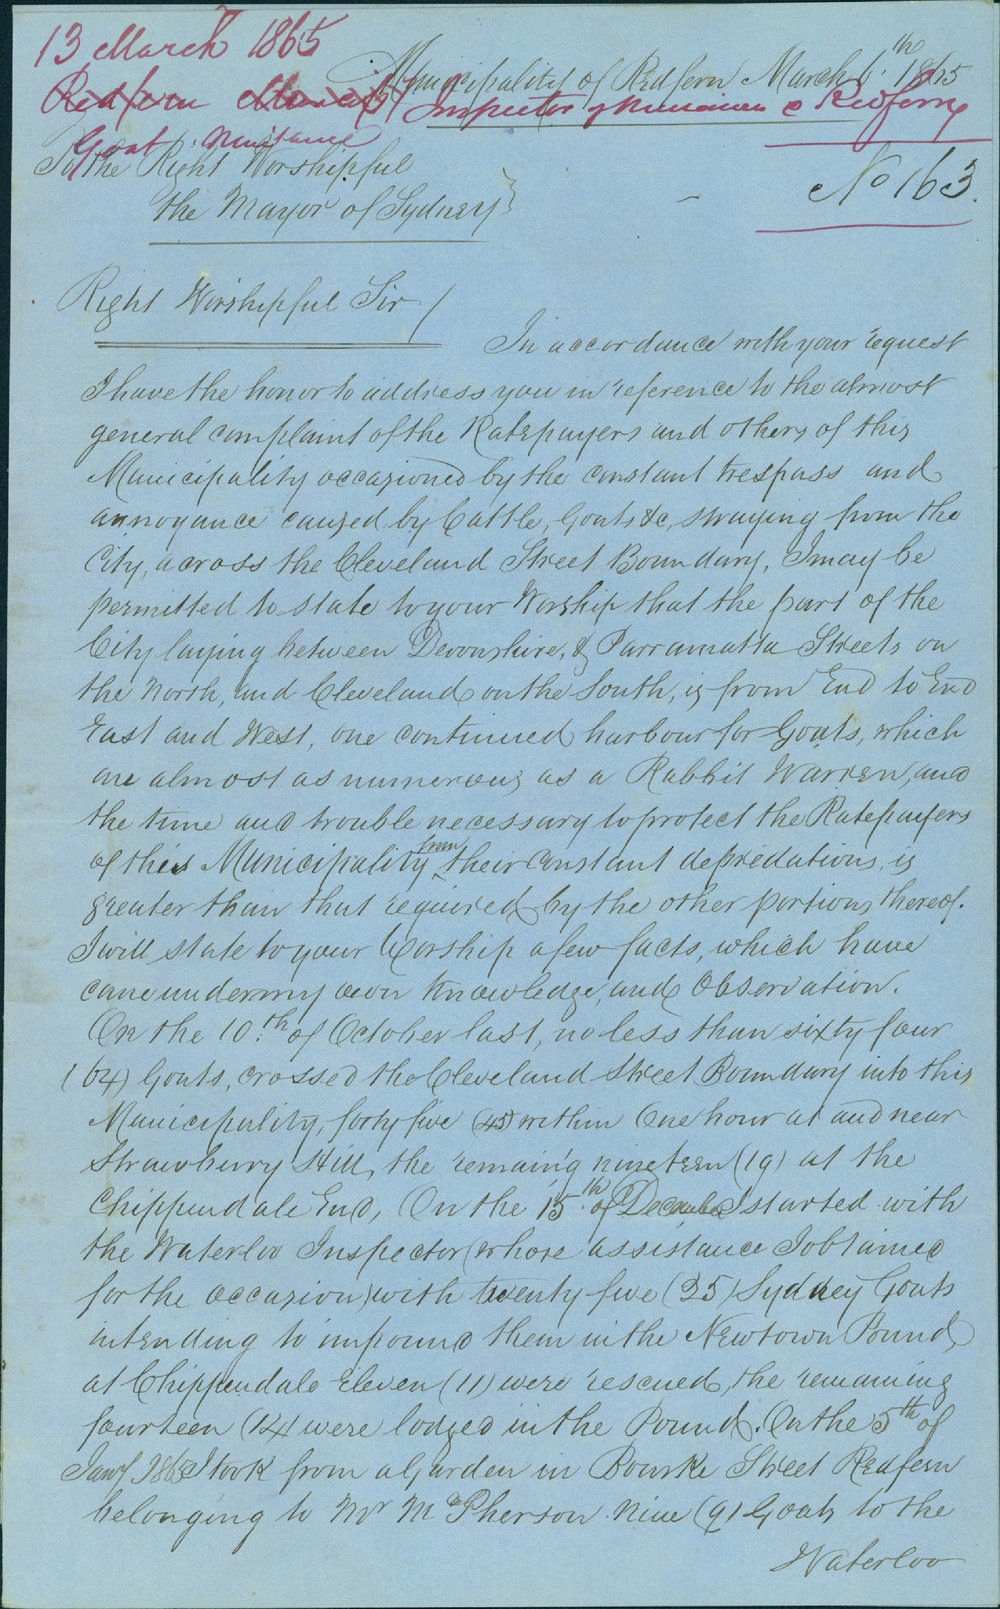 13 March 1865
Municipality of Redfern March 6th 1865
Redfern Municipality Inspector of Nuisances Redfern
Goat Nuisance
To the Right Worshipful
the Mayor of Sydney}
No 163.
Right Worshipful Sir/
In accordance with your request
I have the honor to address you in reference to the almost
general complaint of the Ratepayers and others of this
Municipality occasioned by the constant trespass and
annoyance caused by Cattle, Goats &c, straying from the
City, across the Cleveland Street Boundary, I may be
permitted to state to your Worship that the part of the
City laying between Devonshire, & Parramatta Streets on
the North, and Cleveland on the South, is from End to End
East and West, one continued harbour for Goats, which
are almost as numerous as a Rabbit Warren, and
the time and trouble necessary to protect the Ratepayers
of this Municipality from their constant depredations, is
greater than that required by the other portions thereof.
I will state to your Worship a few facts, which have
came under my own Knowledge, and Observation.
On the 10th of October last, no less than sixty four
(64) Goats, crossed the Cleveland Street Boundary into this
Municipality, forty five (45) within One hour at and near
Strawberry Hill, the remaing nineteen (19) at the
Chippendale End, On the 15th of December I started with
the Waterloo Inspector (whose assistance I obtained
for the occasion) with twenty five (25) Sydney Goats
intending to impound them in the Newtown Pound,
at Chippendale Eleven (11) were rescued, the remaining
fourteen (14) were lodged in the Pound. On the 5th of
Jany 1865 I took from a Garden in Bourke Street Redfern
belonging to Mr McPherson Nine (9) Goats to the
Waterloo